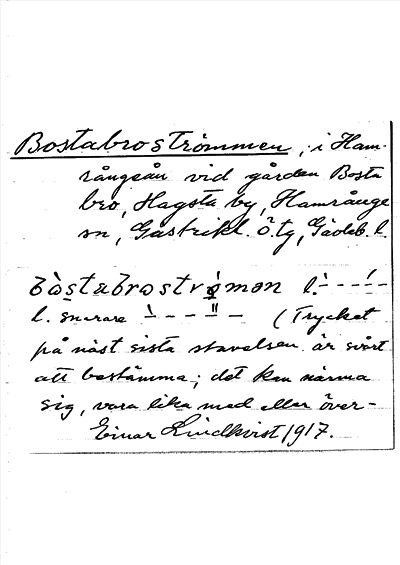 Bostabroströmmen, i Ham-
rångeån vid gården Bosta
bro, Hagsta by, Hamrånge
sn, Gästrikl. ö. tg, Gävleb. l.
bòstabrostrǿmən l. ̀ - - - ́ -
l. snarare ̀ - - - ̎ - (Trycket
på näst sista stavelsen är svårt
att bestämma; det kan närma
sig, vara lika med eller över-
Einar Lindkvist 1917.